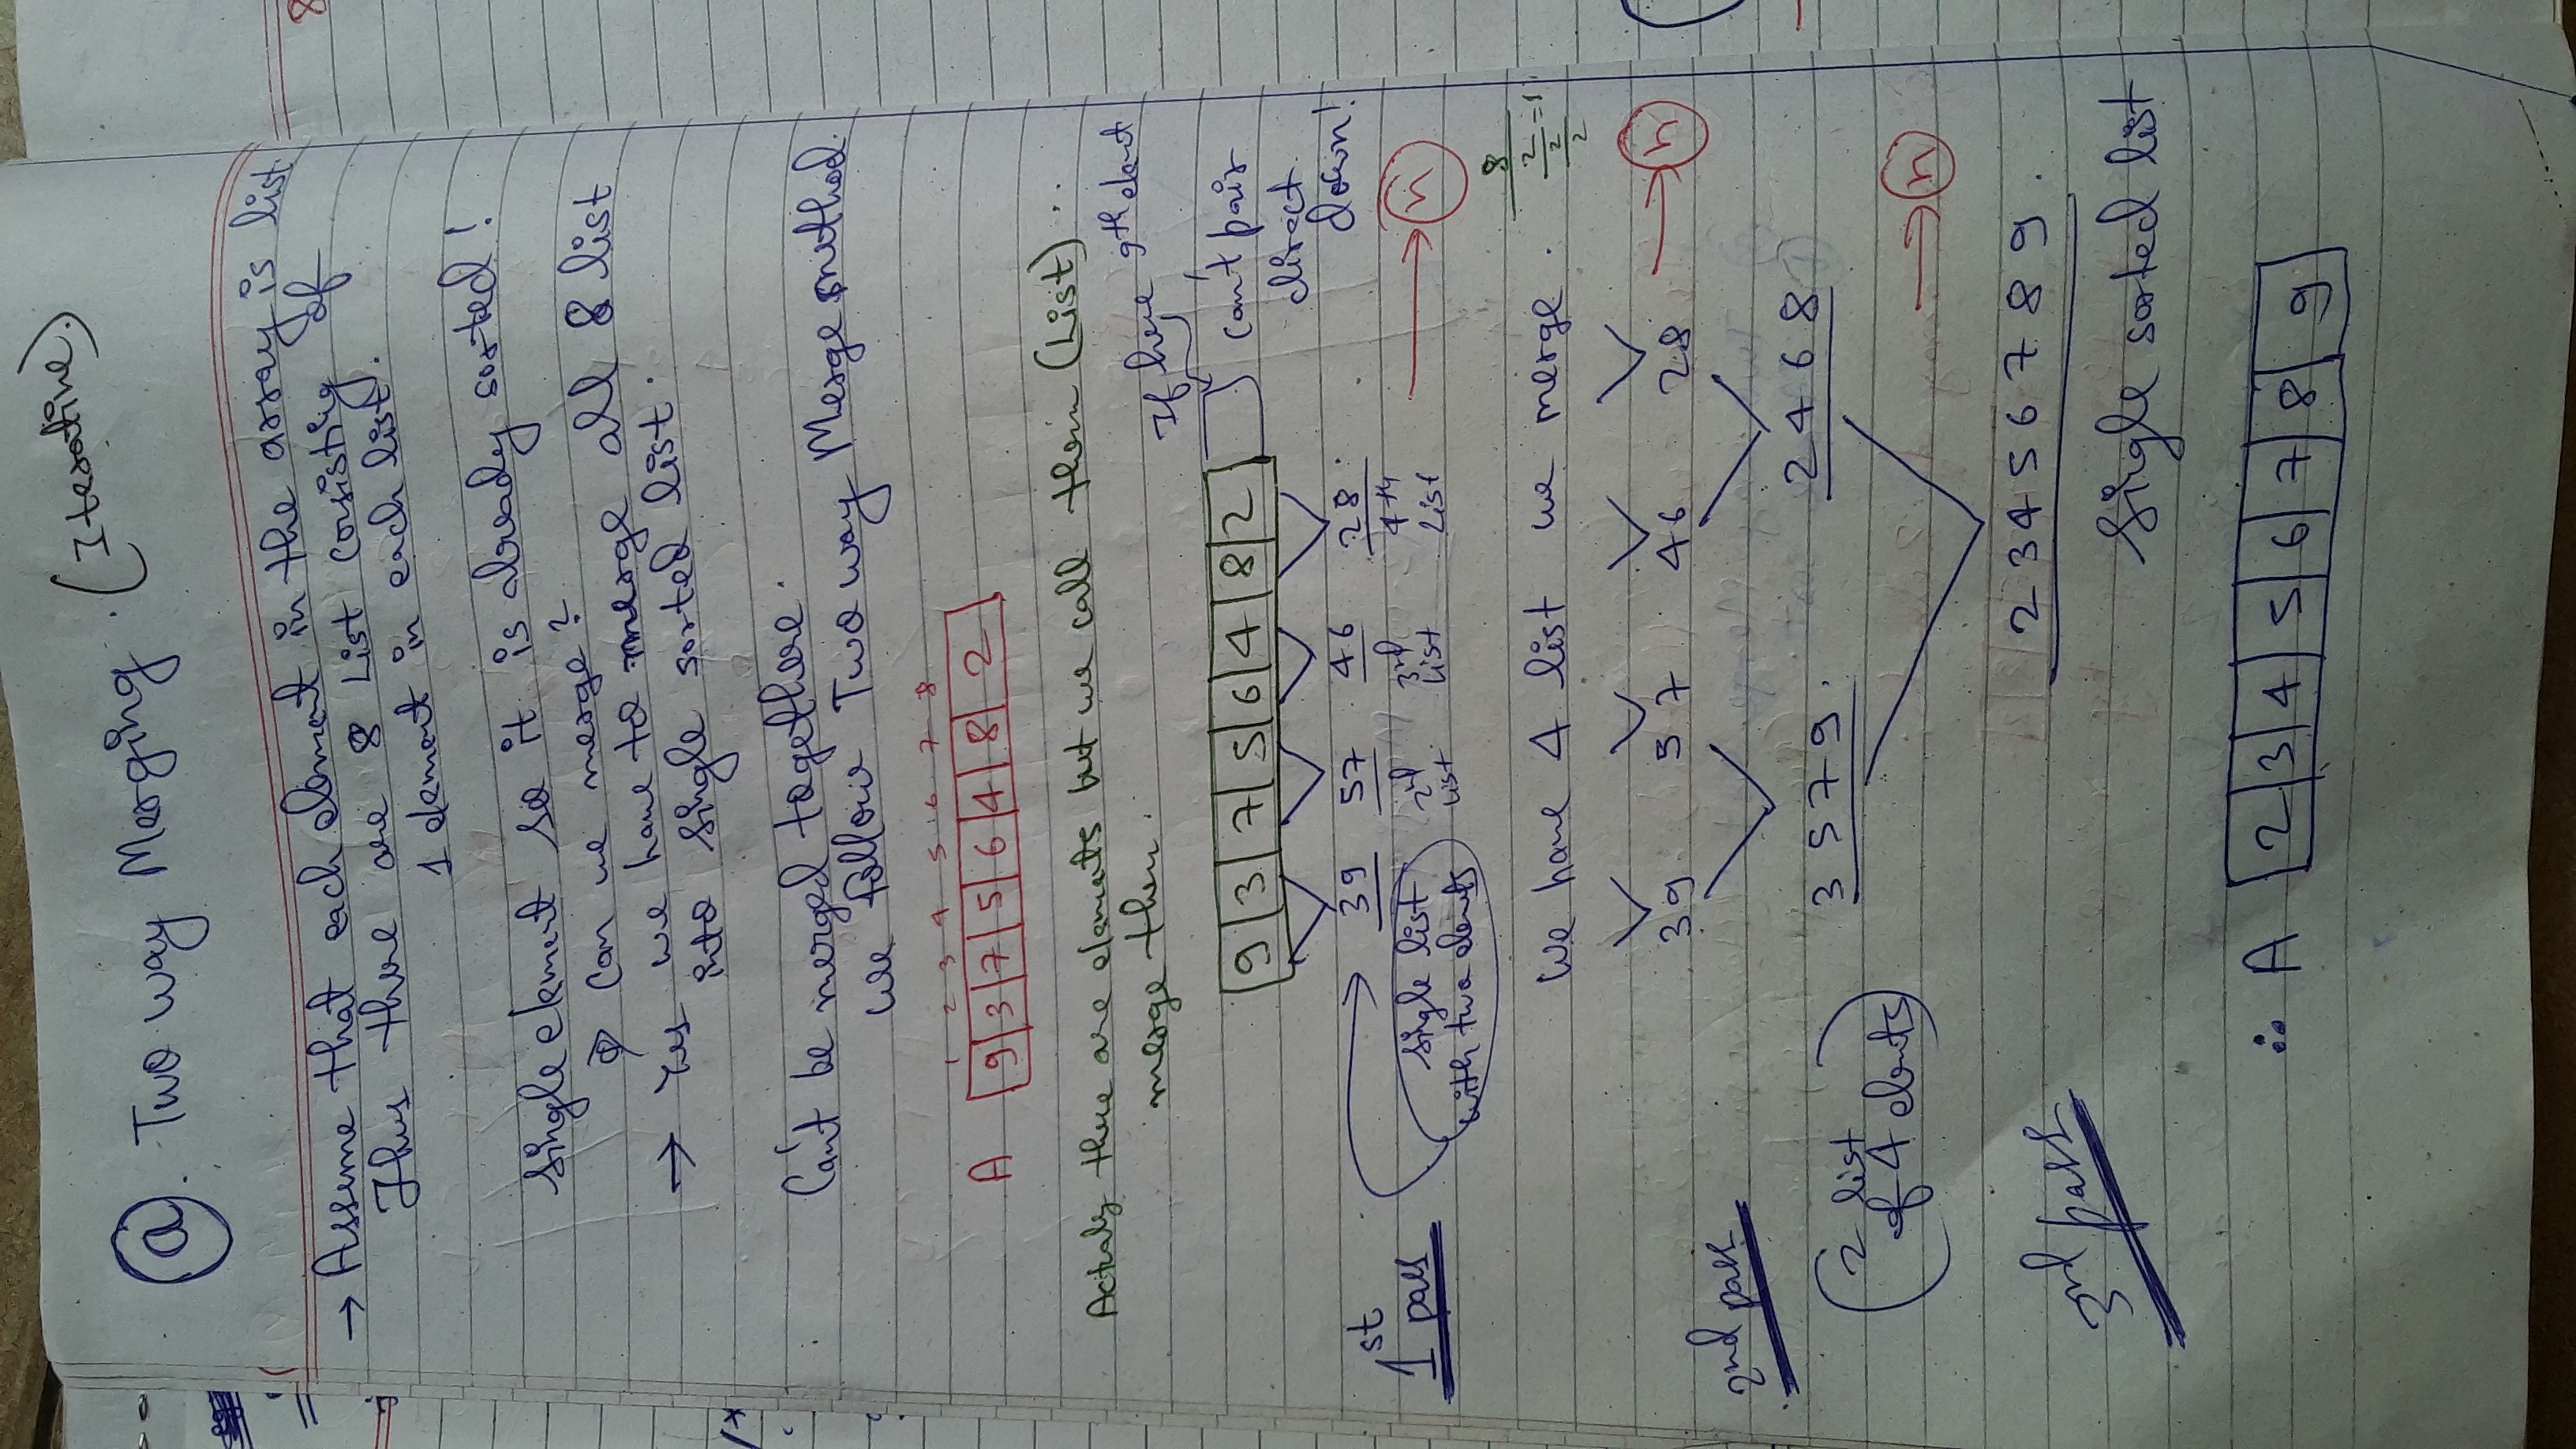 a. Two way Merging. (Iterative.)
→ Assume that each element in the array is list.
Thus there are 8 List consisting of
1 element in each list.
Single element so it is already sorted!
Can we merge?
→ Yes we have to merge all 8 list
into single sorted list.
Can't be merged togethere.
we follow Two way Merge method.
1 2 3 4 5 6 7 8
A 9 3 7 5 6 4 8 2
Actualy there are elements but we call them (List)..
merge then.
If here 9th elent
9 3 7 5 6 4 8 2
can't pair
direct
down!
39 57 46 28
1st pass
single list
with two elents
2nd
List
3rd
List
4th
List
→ n
8
2 = 1
2
2
We have 4 list we merge.
39 57 46 28 → n
2nd pass
3 5 7 9. 2 4 6 8
(2 list
of 4 elents)
→ n
2 3 4 5 6 7 8 9.
3rd pass
Single sorted list
∴ A 2 3 4 5 6 7 8 9